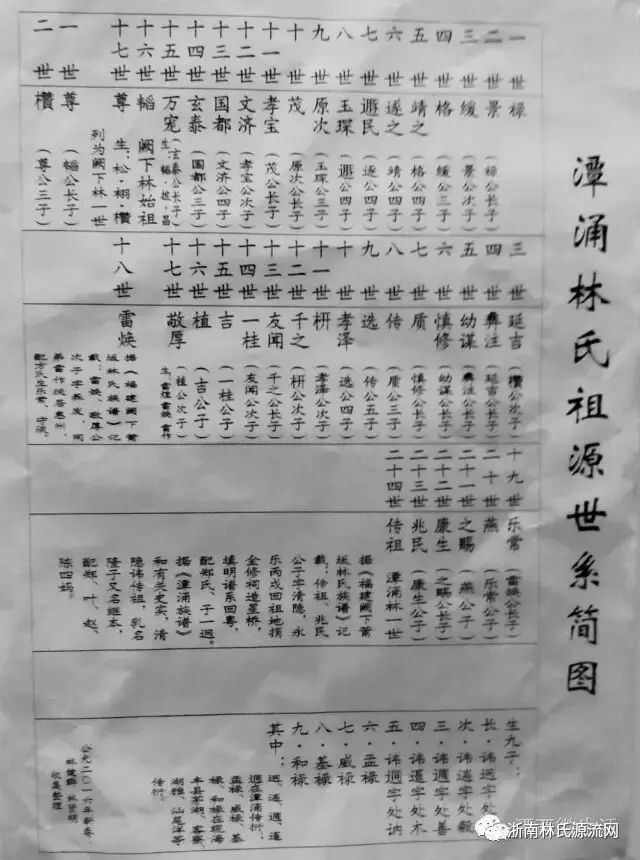 潭涌林氏祖源世系简图
一世 禄
二世 景 (禄公长子)
三世 缓 (景公次子)
四世 格 (缓公三子)
五世 靖之 (格公四子)
六世 遂之 (靖公四子)
七世 民 (公四子)
八世 玉琛 (公四子)
九世 原次 (玉琛公三子)
十世 茂 (原次公长子)
十一世 孝宝 (茂公长子)
十二世 文济 (孝宝公次子)
十三世 国都 (文济公四子)
十四世 玄泰 (国都公三子)
十五世 万宠 (玄泰公长子)
生:韬·披·昌
十六世 韬 阙下林始祖
十七世 尊 生:松·栩·欑
列为阙下林一世
一世 尊 (韬公长子)
二世 欑 (尊公三子)
三世 延吉 (欑公次子)
四世 彝注 (延吉公长子)
五世 幼谋 (彝注公长子)
六世 慎修 (幼谋公长子)
七世 质 (慎修公长子)
八世 传 (质公三子)
九世 选 (传公五子)
十世 孝泽 (选公四子)
十一世 枅 (孝泽公次子)
十二世 千之 (枅公次子)
十三世 友闻 (千之公长子)
十四世 一桂 (友闻公次子)
十五世 吉 (一桂公子)
十六世 植 (吉公子)
十七世 敬厚 (植公次子)
生:雷煌雷焕·雷作
十八世 雷焕
据《福建阙下莆
坂林氏族谱》记
载:雷焕,敬厚公
次子字
弟雷作
配方氏生乐常、
十九世 乐常 (雷焕公长子)
二十世 燕 (乐常公子)
二十一世 之赐 (燕公子)
二十二世 康生 (之赐公长子)
二十三世 兆民 (康生公子)
二十四世 传祖 潭涌林一世
据《福建阙下莆
坂林氏族谱》记
载:传祖,兆民
公子字清隐,永
乐丙戌回祖地捐
金修祠造星桥,
填明谱系回粤,
配郑氏、子一迥。
据《潭涌族谱》
和有关史实,清
隐讳传祖,乳名
隆子又名继本,
配郑、叶、赵、
陈四妈。
生九子:
长·讳迥字处
次·讳遄字处毅
三·讳迵字处善
四·讳字处木
五·讳迴字处讷
六·孟禄
七·威禄
八·基禄
九·和禄
其中:
迥在潭涌传衍,
孟禄、威禄、基
禄、和禄在现海
丰县茅湖、客寮、
湖雅、汕尾洋等
传衍。
公元二〇一六年新春,
收集整理
浙南林氏源流网